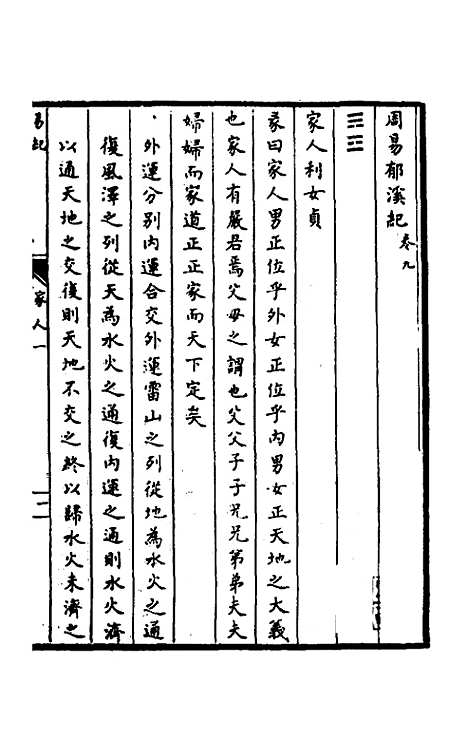 周易郁溪記 卷九
家人利女貞
彖曰家人男正位乎外女正位乎內男女正天地之大義
也家人有嚴君焉父母之謂也父父子子兄兄弟弟夫夫
婦婦而家道正正家而天下定矣
外運分別內運合交外運雷山之列從地為水火之通
復風澤之列從天為水火之通復內運之通則水火濟
以通天地之交復則天地不交之終以歸水火未濟之
易記
家人一